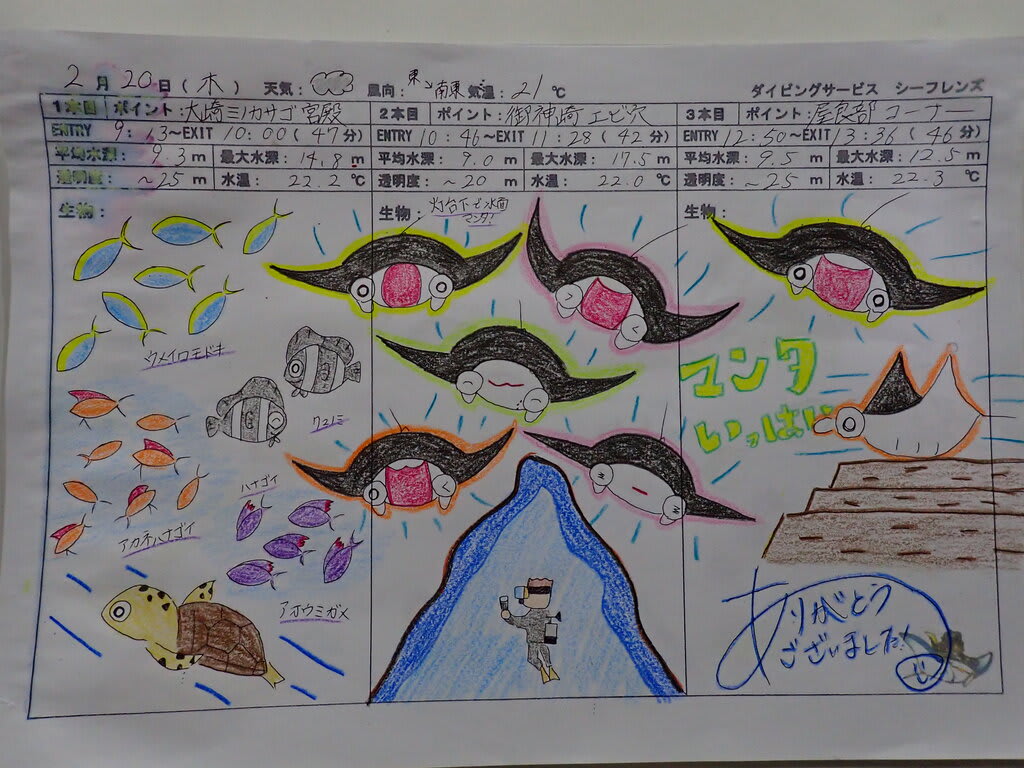 2月20日(木) 天気: 風向:東→南東 気温:21℃ ダイビングサービス シーフレンズ
1本目 ポイント:大崎ミノカサゴ宮殿
ENTRY 9:13~EXIT 10:00(47分)
平均水深: 9.3 m 最大水深: 14.8 m
透明度: ~25 m 水温: 22.2 ℃
生物:
ウメイロモドキ
クマノミ
ハナゴイ
アカネハナゴイ
アオウミガメ
2本目 ポイント:御神崎エビ穴
ENTRY 10:46~EXIT 11:28(42分)
平均水深: 9.0 m 最大水深: 17.5 m
透明度: ~20 m 水温: 22.0 ℃
生物: 灯台下で水面
マンタ!
3本目 ポイント:屋良部コーナー
ENTRY 12:50~EXIT 13:36(46分)
平均水深: 9.5 m 最大水深: 12.5 m
透明度: ~25 m 水温: 22.3 ℃
生物:
マンタ
いっぱい
ありがとう
ございました!